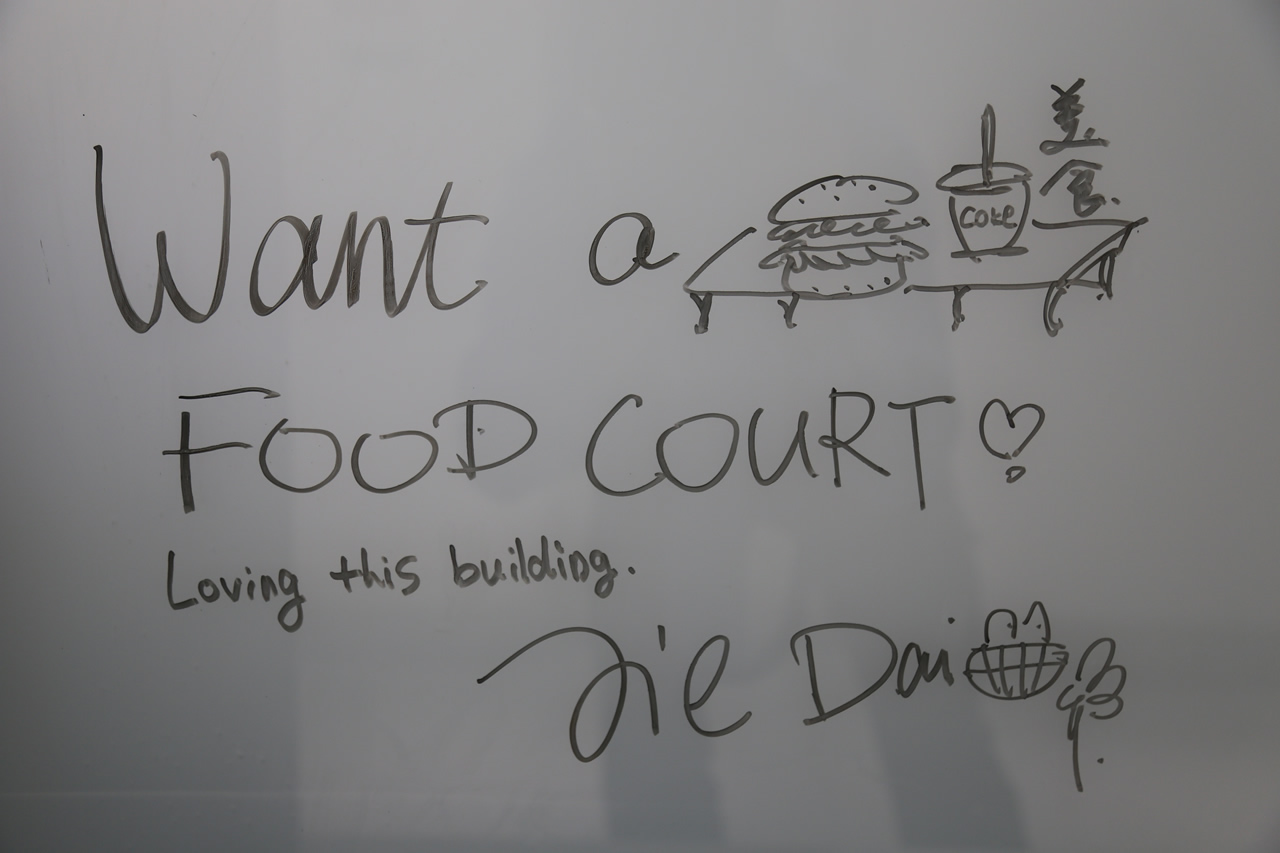 Want a
coke
美食
FOOD COURT
Loving this building.
Jie Dai